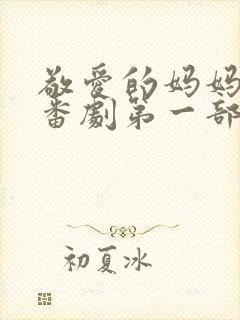 敬爱的妈妈
番劇第一部
初夏冰